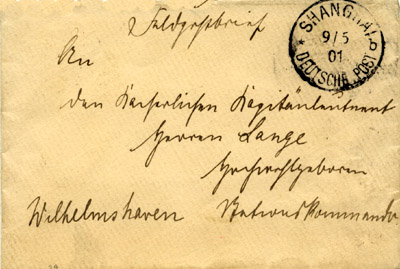 Feldpostbrief
SHANGHAI B
9/5
01
DEUTSCHE POST
An
den Kaiserlichen Kapitänleutnant
Herrn Lange
Hochwohlgeboren
Wilhelmshaven Stationskommando